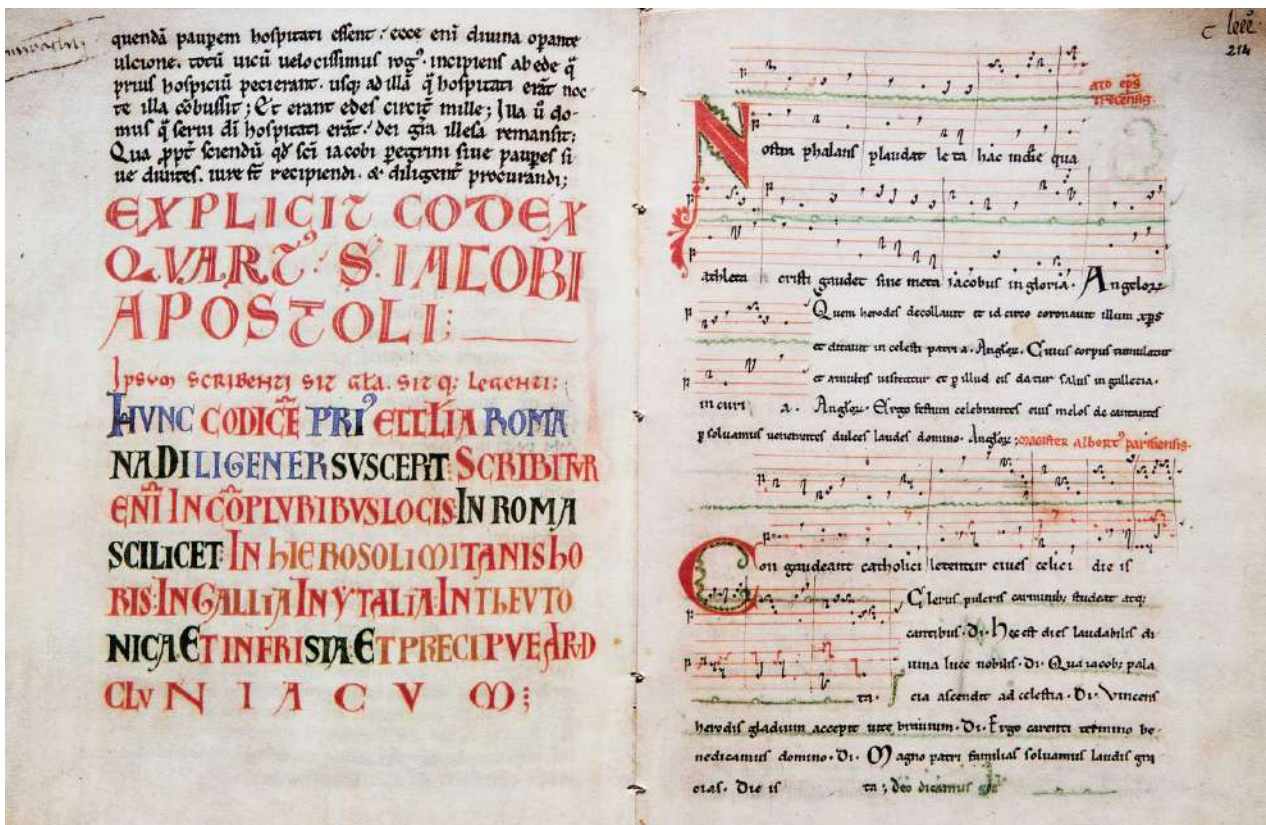 quendā paupem hospitati essent: ecce eni diuina opante
ulcione. totū uicū uelocissimus rogꝰ. incipiens ab ede q̄
prius hospiciū pecierant. usq; ad illā q̄ hospitati erāt noc
te illa cōbussit; Et erant edes circit̄ mille; Illa ū do-
mus q̄ serui dī hospitati erāt. dei gīa illesa remansit;
Qua ꝓpt̄ sciendū qđ scī iacobi peregrini siue paupes si
ue diuites. iure st̄ recipiendi. & diligent̄ procurandi;
EXPLICIT CODEX
QVARTꝰ. S. IACOBI
APOSTOLI;
Ipsum scribenti sit gła. sit q; legenti:
HVNC CODICĒ PRIꝰ ECCLĪA ROMA
NA DILIGENER SVSCEPIT: SCRIBITVR
ENĪ IN CŌPLVRIBVS LOCIS: IN ROMA
SCILICET: IN HIEROSOLIMITANIS HO
RIS: IN GALLIA: IN YTALIA: IN THEVTO
NICA: ET IN FRISIA: ET PRECIPVE APUD
CLVNIACVM;
214
ato ep̄s
trecensis.
Nostra phalans plaudat leta hac indie qua
athleta cristi gaudet sine meta iacobus in gloria. Angeloꝝ
Quem herodes decollauit et id circo coronauit illum xp̄s
et ditauit in celesti patria. Angloꝝ. Cuius corpus tumulatur
et a multis uisitatur et p illud eis datur salus in gallecia.
in curi a. Angloꝝ. Ergo festum celebrantes eius melos de cantantes
p soluamus uenerantes dulces laudes domino. Angloꝝ: magister albertꝰ parisiensis.
Con gaudeant catholici letentur ciues celici die is
Clerus pulcris carminib; studeat atq;
cantibus. Di. Hec est dies laudabilis di
uina luce nobilis. Di. Qua iacob; pala
ta. cia ascendit ad celestia. Di. Vincens
herodis gladium accepit uite brauium. Di. Ergo carenti termino be
nedicamus domino. Di. Magno patri familias soluamus laudis gra
cias. Die is ta; deo dicamus